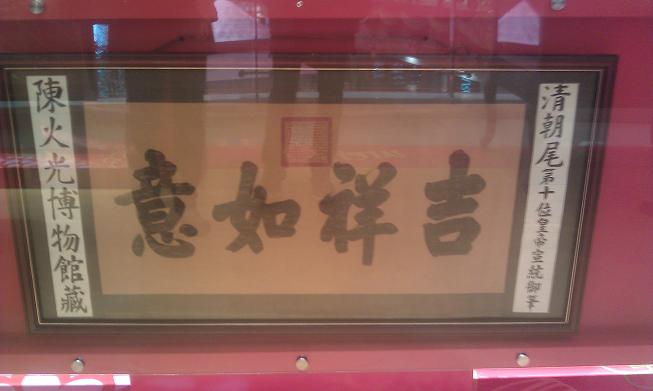 清朝尾第十位皇帝宣統御筆
吉祥如意
陳火光博物館藏